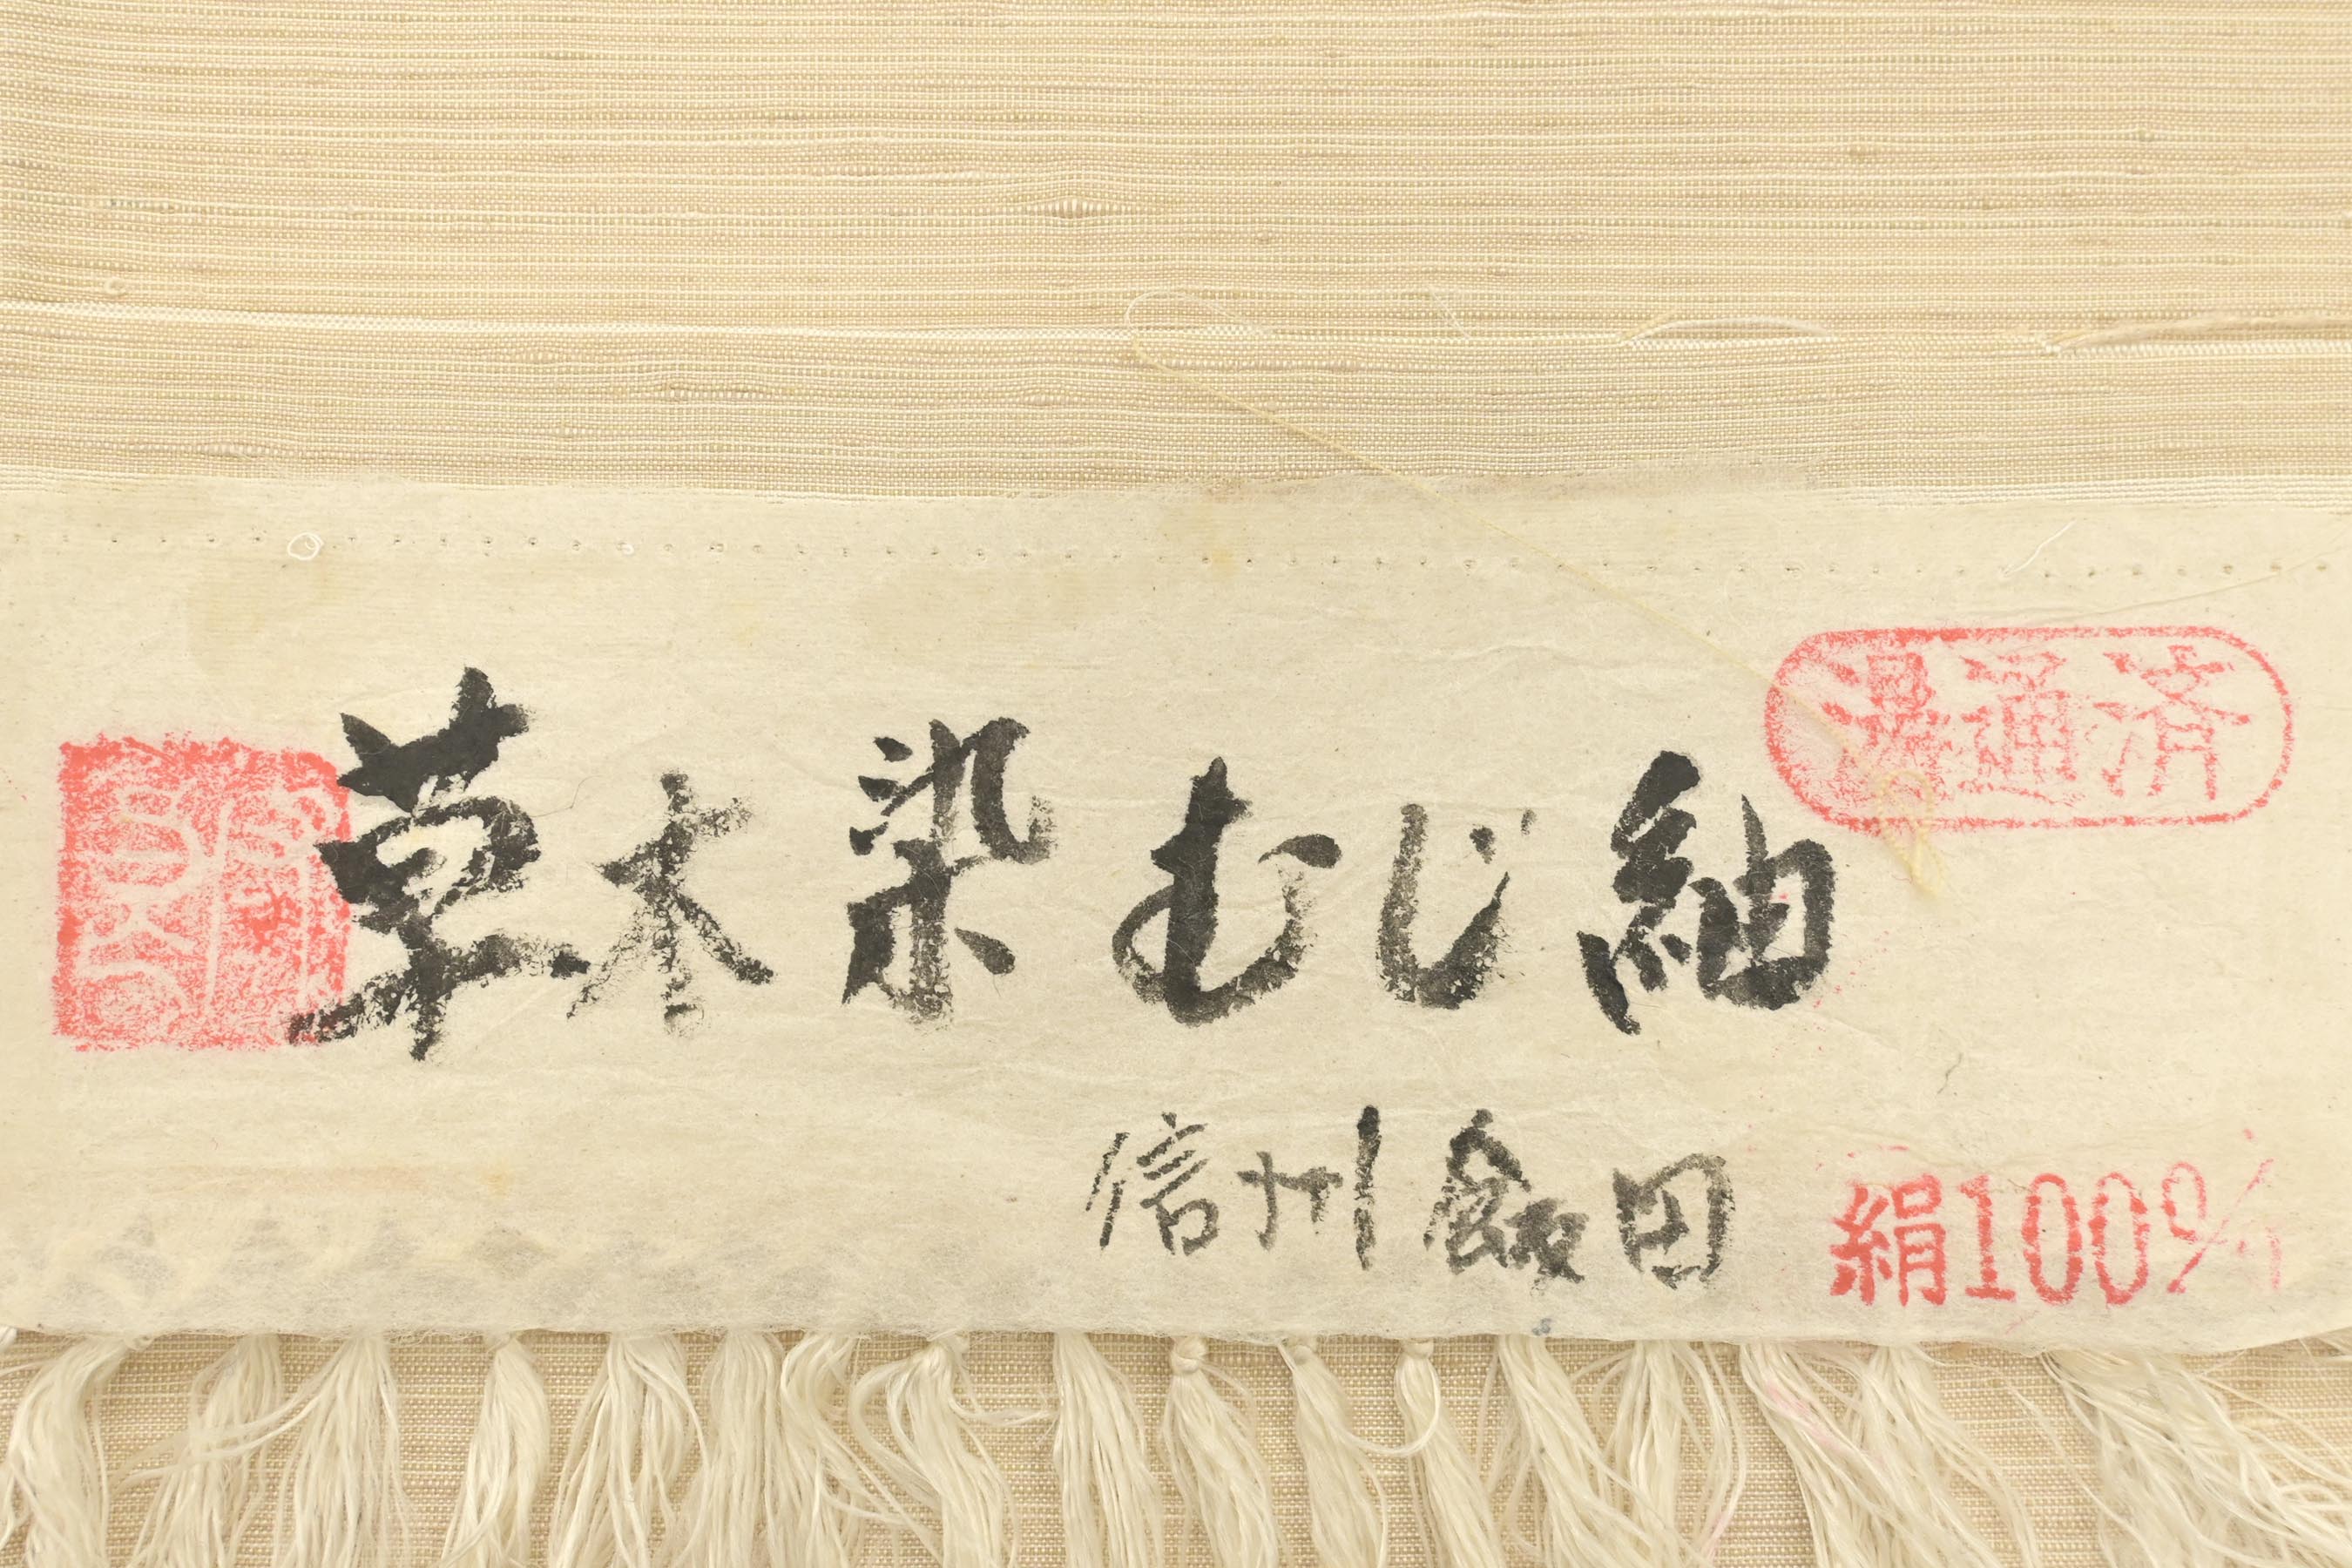 湯通済
草木染むじ紬
信州飯田
絹100%